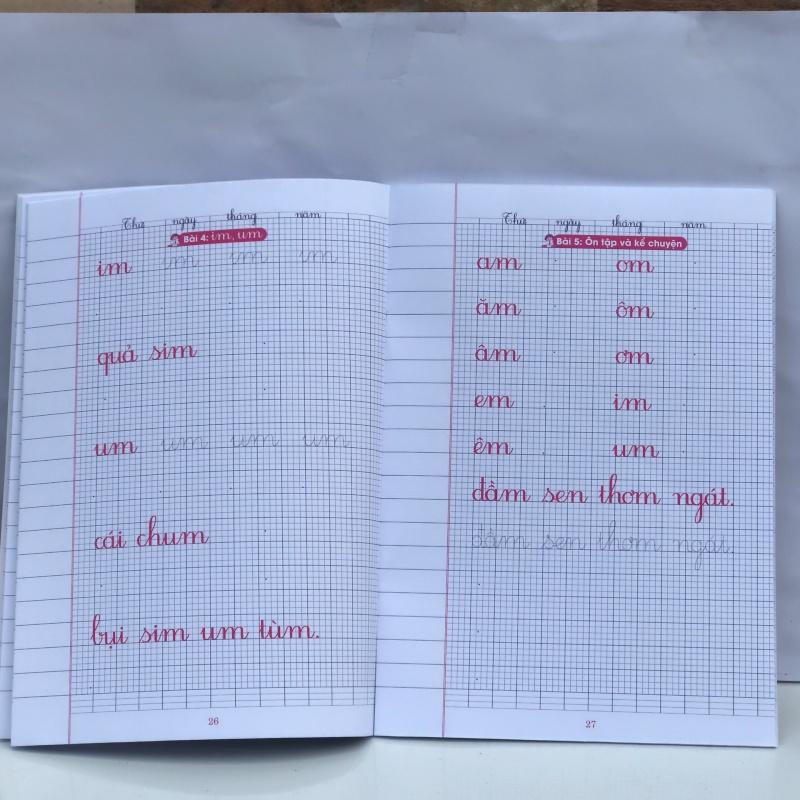 Thứ ngày tháng năm
Bài 4: im, um
im im im im
quả sim
um um um um
cái chum
bụi sim um tùm.
26
Thứ ngày tháng năm
Bài 5: Ôn tập và kể chuyện
am om
ăm ôm
âm ơm
em im
êm um
đầm sen thơm ngát.
đầm sen thơm ngát.
27